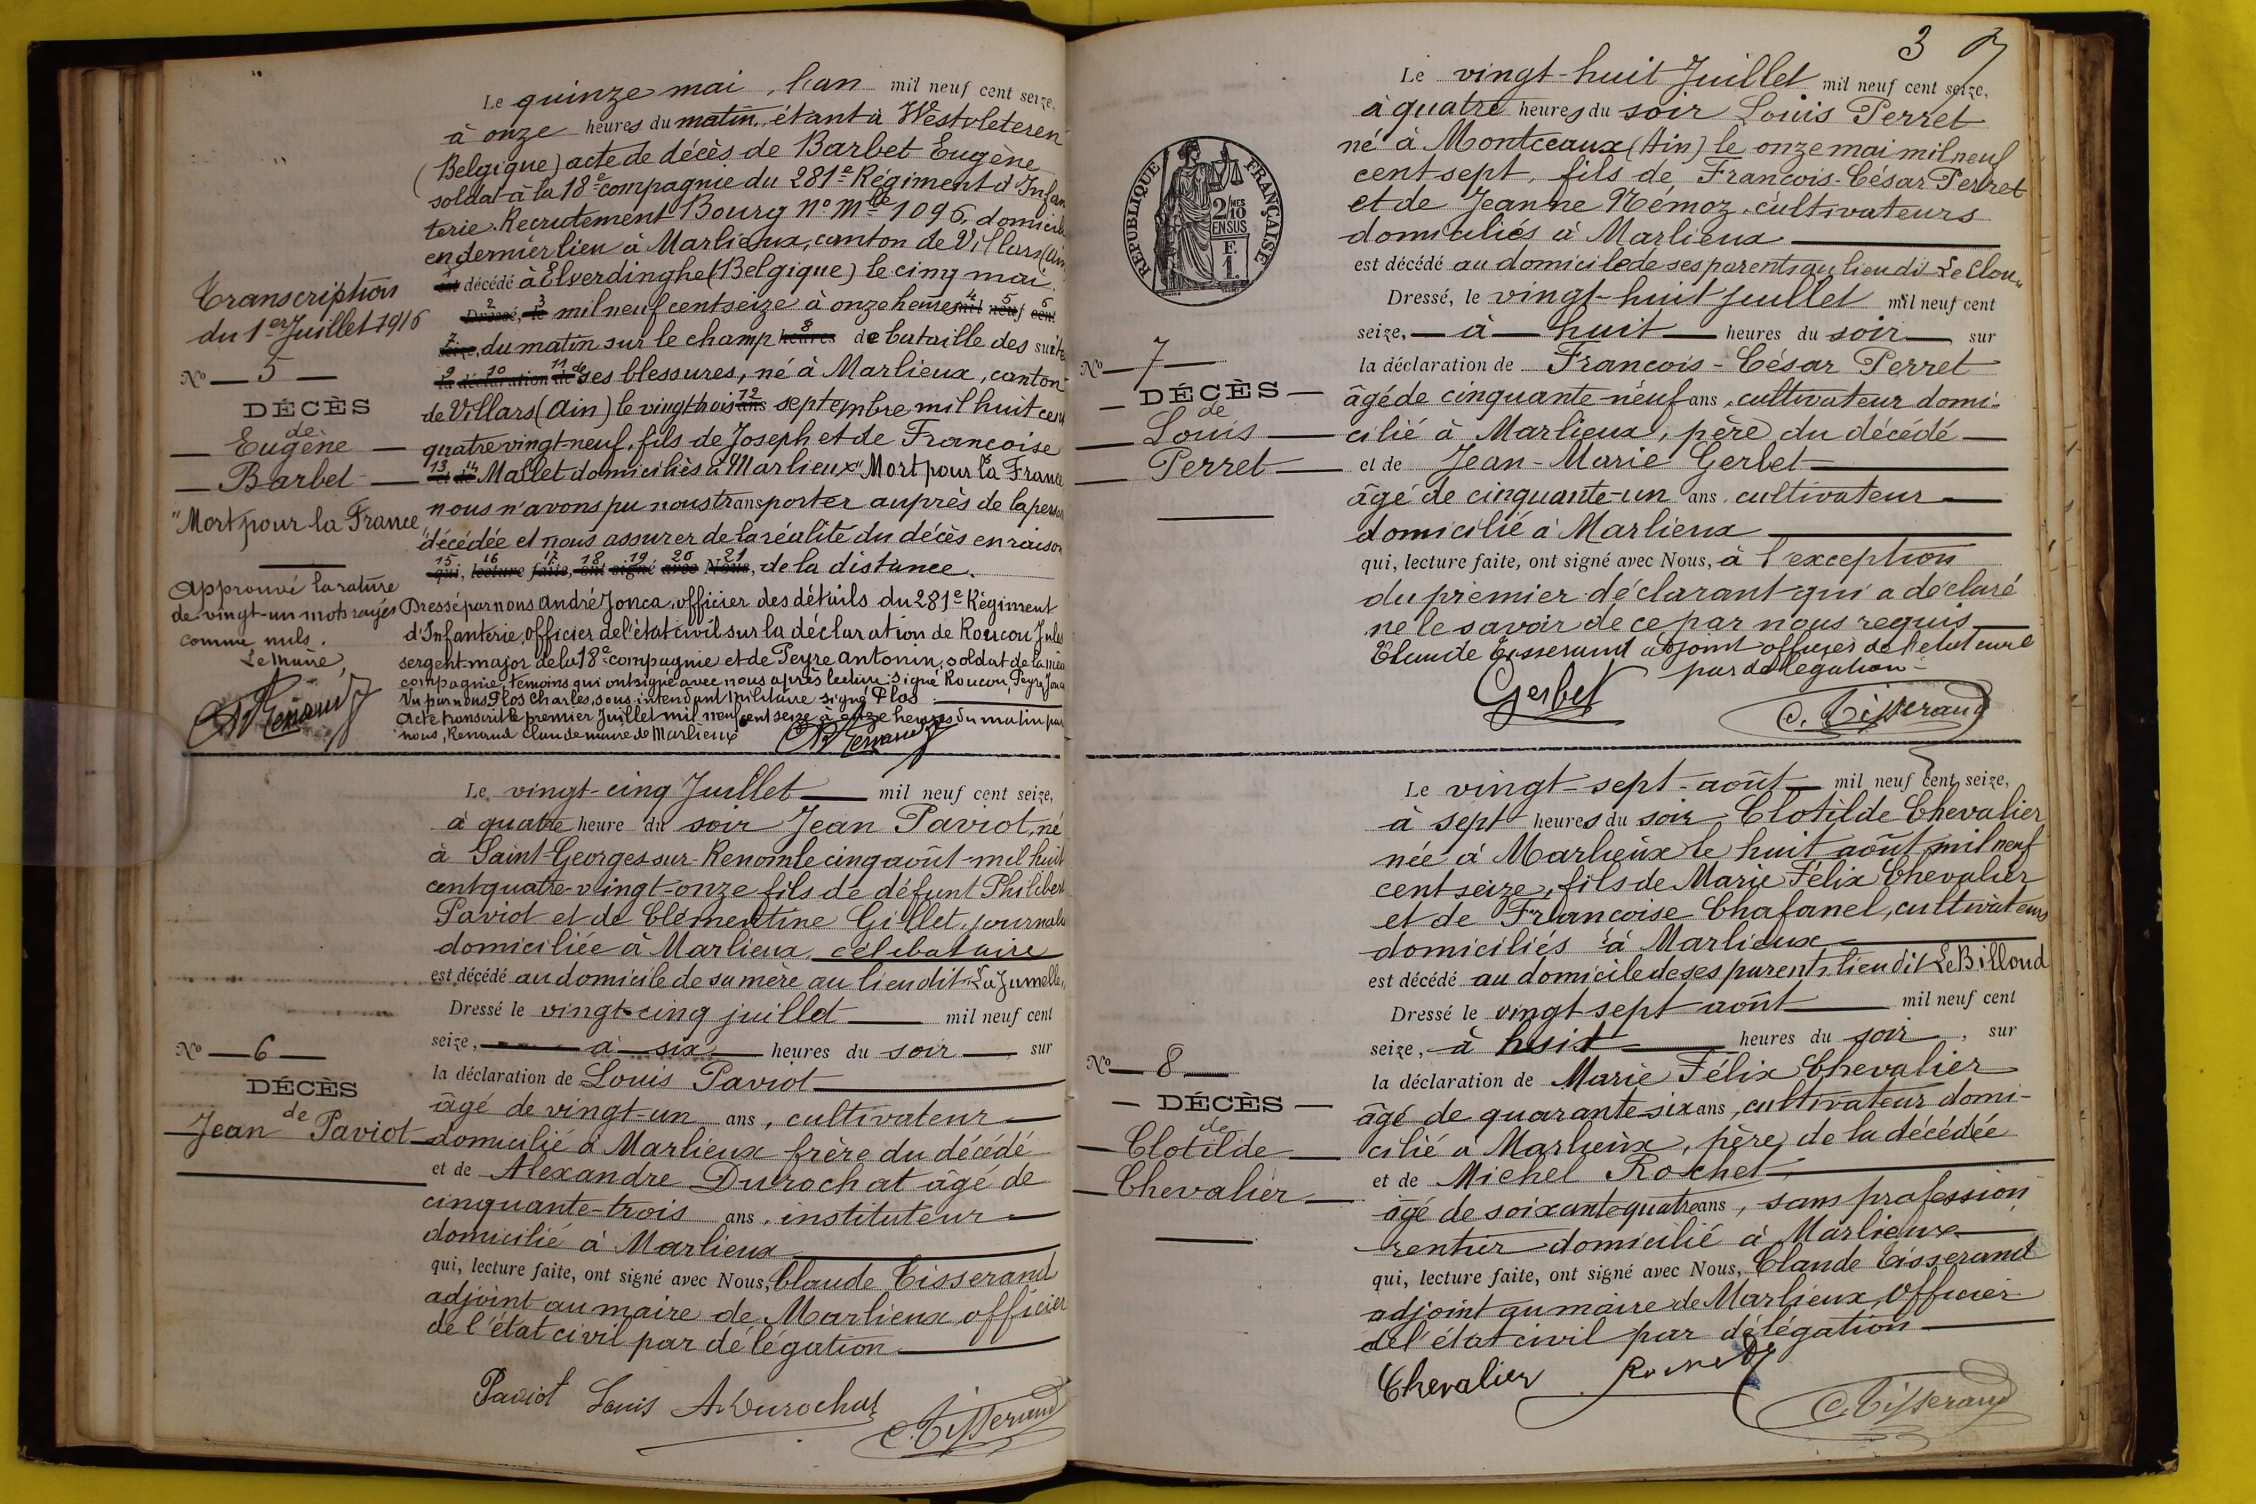 Le quinze mai, l'an mil neuf cent seize,
à onze heures du matin, étant à Westvleteren
(Belgique) acte de décès de Barbet Eugène
soldat à la 18e compagnie du 281e Régiment d'Infan
terie. Recrutement Bourg No Mle 1096, domicilié
en dernier lieu à Marlieux, canton de Villars (Ain)
est décédé à Elverdinghe (Belgique) le cinq mai
Dressé, le mil neuf cent seize à onze heures mil neuf cent
seize, du matin sur le champ heures de bataille des suites
la déclaration de de ses blessures, né à Marlieux, canton
de Villars (Ain) le vingt trois ans septembre mil huit cent
quatre vingt-neuf, fils de Joseph et de Francoise
et de Mallet domiciliés à Marlieux "Mort pour la France
nous n'avons pu nous transporter auprès de la person
décédée et nous assurer de la réalité du décès en raison
qui, lecture faite, ont signé avec Nous, de la distance.
Dressé par nous André Jonca, officier des détails du 281e Régiment
d'Infanterie, officier de l'état civil sur la déclaration de Roucou Jules
sergent-major de la 18e compagnie et de Peyre Antonin, soldat de la même
compagnie, témoins qui ont signé avec nous après lecture. signé Roucou, Peyre, Jonca
Vu par nous Flos Charles, sous intendant militaire signé Flos
Acte transcrit le premier Juillet mil neuf cent seize à onze heures du matin par
nous, Renaud Claude maire de Marlieux
Renaud
Transcription
du 1er Juillet 1916
No 5
DÉCÈS
de
Eugène
Barbet
"Mort pour la France"
Approuvé la rature
de vingt-un mots rayés
comme nuls.
Le Maire,
Renaud
Le vingt-cinq Juillet mil neuf cent seize,
à quatre heure du soir Jean Paviot, né
à Saint-Georges-sur-Renom le cinq août mil huit
cent quatre-vingt-onze fils de défunt Philibert
Paviot et de Clémentine Gillet, journalière
domiciliée à Marlieux, célibataire
est décédé au domicile de sa mère au lieu dit "La Jumelle"
Dressé le vingt-cinq juillet mil neuf cent
seize, à six heures du soir sur
la déclaration de Louis Paviot
âgé de vingt-un ans, cultivateur
domicilié à Marlieux frère du décédé
et de Alexandre Durochat âgé de
cinquante-trois ans, instituteur
domicilié à Marlieux
qui, lecture faite, ont signé avec Nous, Claude Tisserand
adjoint au maire de Marlieux officier
de l'état civil par délégation
Paviot Louis A. Durochat
C. Tisserand
No 6
DÉCÈS
de
Jean Paviot
3
Le vingt-huit Juillet mil neuf cent seize,
à quatre heures du soir Louis Perret
né à Montceaux (Ain) le onze mai mil neuf
cent sept, fils de Francois-César Perret
et de Jeanne Némoz, cultivateurs
domiciliés à Marlieux
est décédé au domicile de ses parents au lieu dit Le Clou"
Dressé, le vingt-huit Juillet mil neuf cent
seize, à huit heures du soir sur
la déclaration de Francois-César Perret
âgé de cinquante-neuf ans, cultivateur domi-
cilié à Marlieux, père du décédé
et de Jean-Marie Gerbet
âgé de cinquante-un ans, cultivateur
domicilié à Marlieux
qui, lecture faite, ont signé avec Nous, à l'exception
du premier déclarant qui a déclaré
ne le savoir de ce par nous requis
Claude Tisserand adjoint officier de l'état civil
par délégation
Gerbet
C. Tisserand
RÉPUBLIQUE FRANÇAISE
2/10MES
EN SUS
F.
1.
No 7
DÉCÈS
de
Louis
Perret
Le vingt-sept août mil neuf cent seize,
à sept heures du soir Clotilde Chevalier
née à Marlieux le huit août mil neuf
cent seize, fils de Marie Félix Chevalier
et de Francoise Chafanel, cultivateurs
domiciliés à Marlieux
est décédé au domicile de ses parents, lieu dit Le Billoud
Dressé le vingt sept août mil neuf cent
seize, à huit heures du soir, sur
la déclaration de Marie Félix Chevalier
âgé de quarante-six ans, cultivateur domi-
cilié à Marlieux, père de la décédée
et de Michel Rochet
âgé de soixante quatre ans, sans profession
rentier domicilié à Marlieux
qui, lecture faite, ont signé avec Nous, Claude Tisserand
adjoint au maire de Marlieux, Officier
de l'état civil par délégation
Chevalier Rochet
C. Tisserand
No 8
DÉCÈS
de
Clotilde
Chevalier